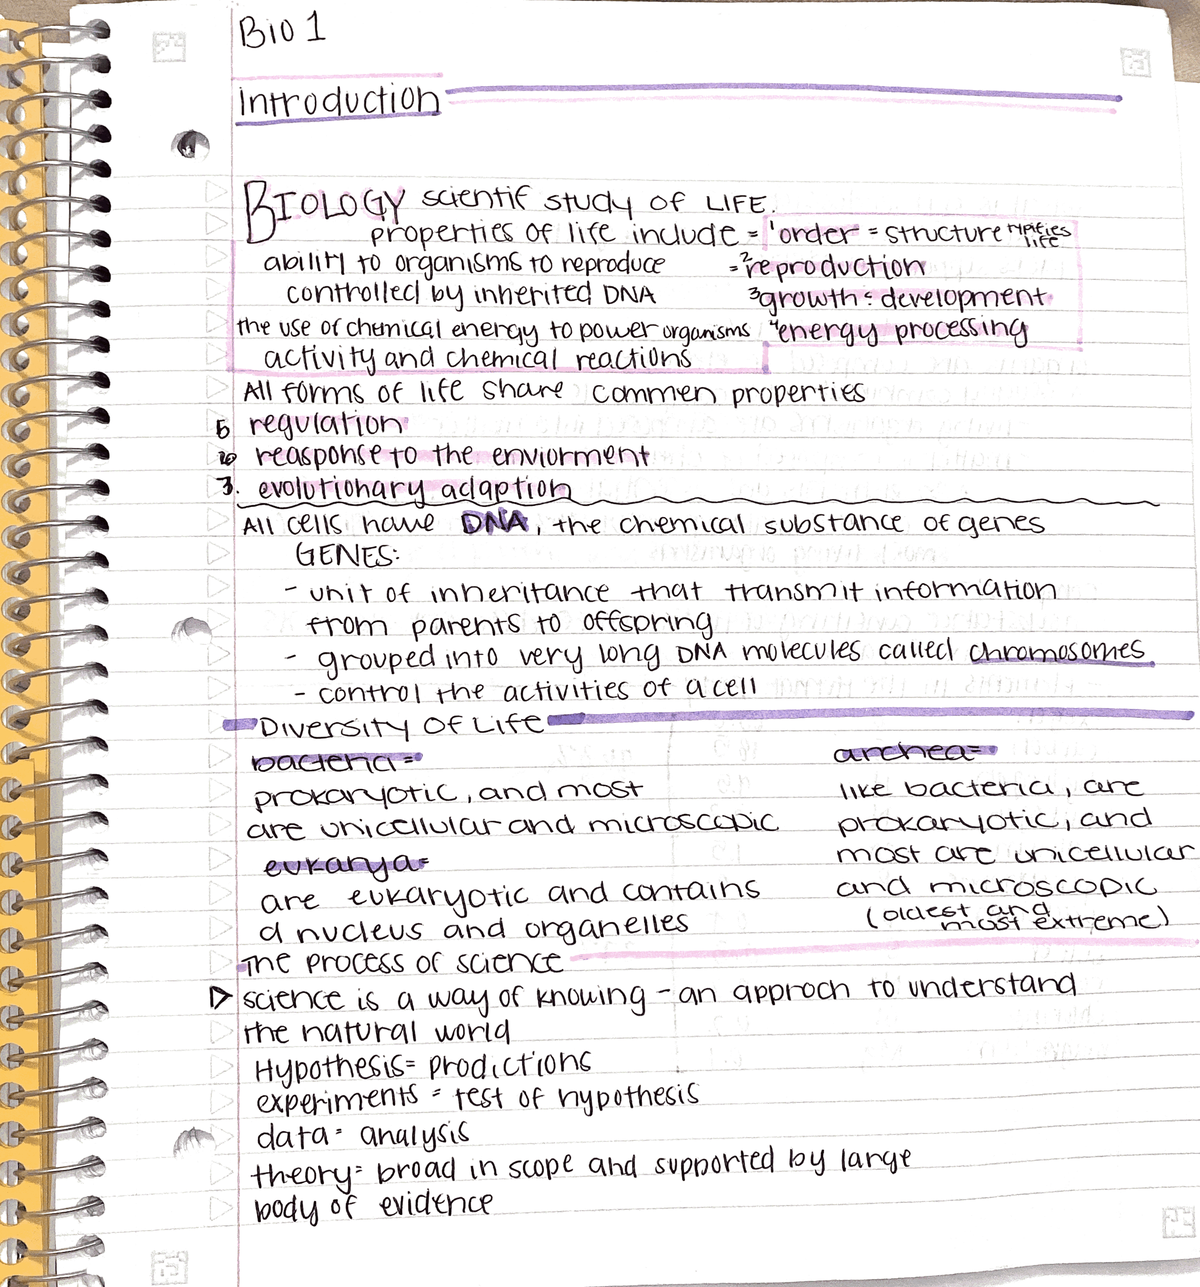 Bio 1
Introduction
BIOLOGY scientif study of LIFE.
properties of life include = 1 order = structure typifies life
ability to organisms to reproduce =2 reproduction
controlled by inherited DNA 3 growth & development
the use of chemical energy to power organisms 4 energy processing
activity and chemical reactions
All forms of life share commen properties
5 regulation
6 reasponse to the enviorment
7. evolutionary adaption
All cells have DNA, the chemical substance of genes
GENES:
- unit of inheritance that transmit information
from parents to offspring
- grouped into very long DNA molecules called chromosomes
- control the activities of a cell
Diversity of Life
bacteria=
prokaryotic, and most
are unicellular and microscopic
eukarya=
are eukaryotic and contains
a nucleus and organelles
archea=
like bacteria, are
prokaryotic, and
most are unicellular
and microscopic
(oldest and
most extreme)
The process of science
science is a way of knowing - an approch to understand
the natural world
Hypothesis= prodictions
experiments = test of hypothesis
data= analysis
theory= broad in scope and supported by large
body of evidence